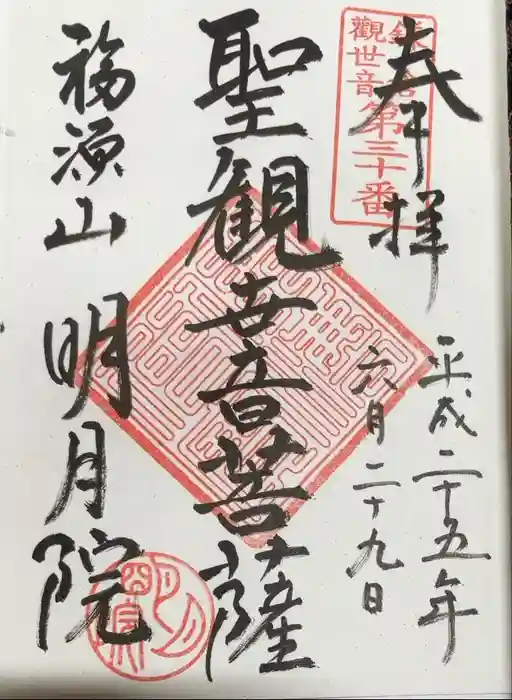 奉拝
鎌倉
觀世音第三十番
平成二十五年
六月二十九日
聖観世音菩薩
福源山 明月院